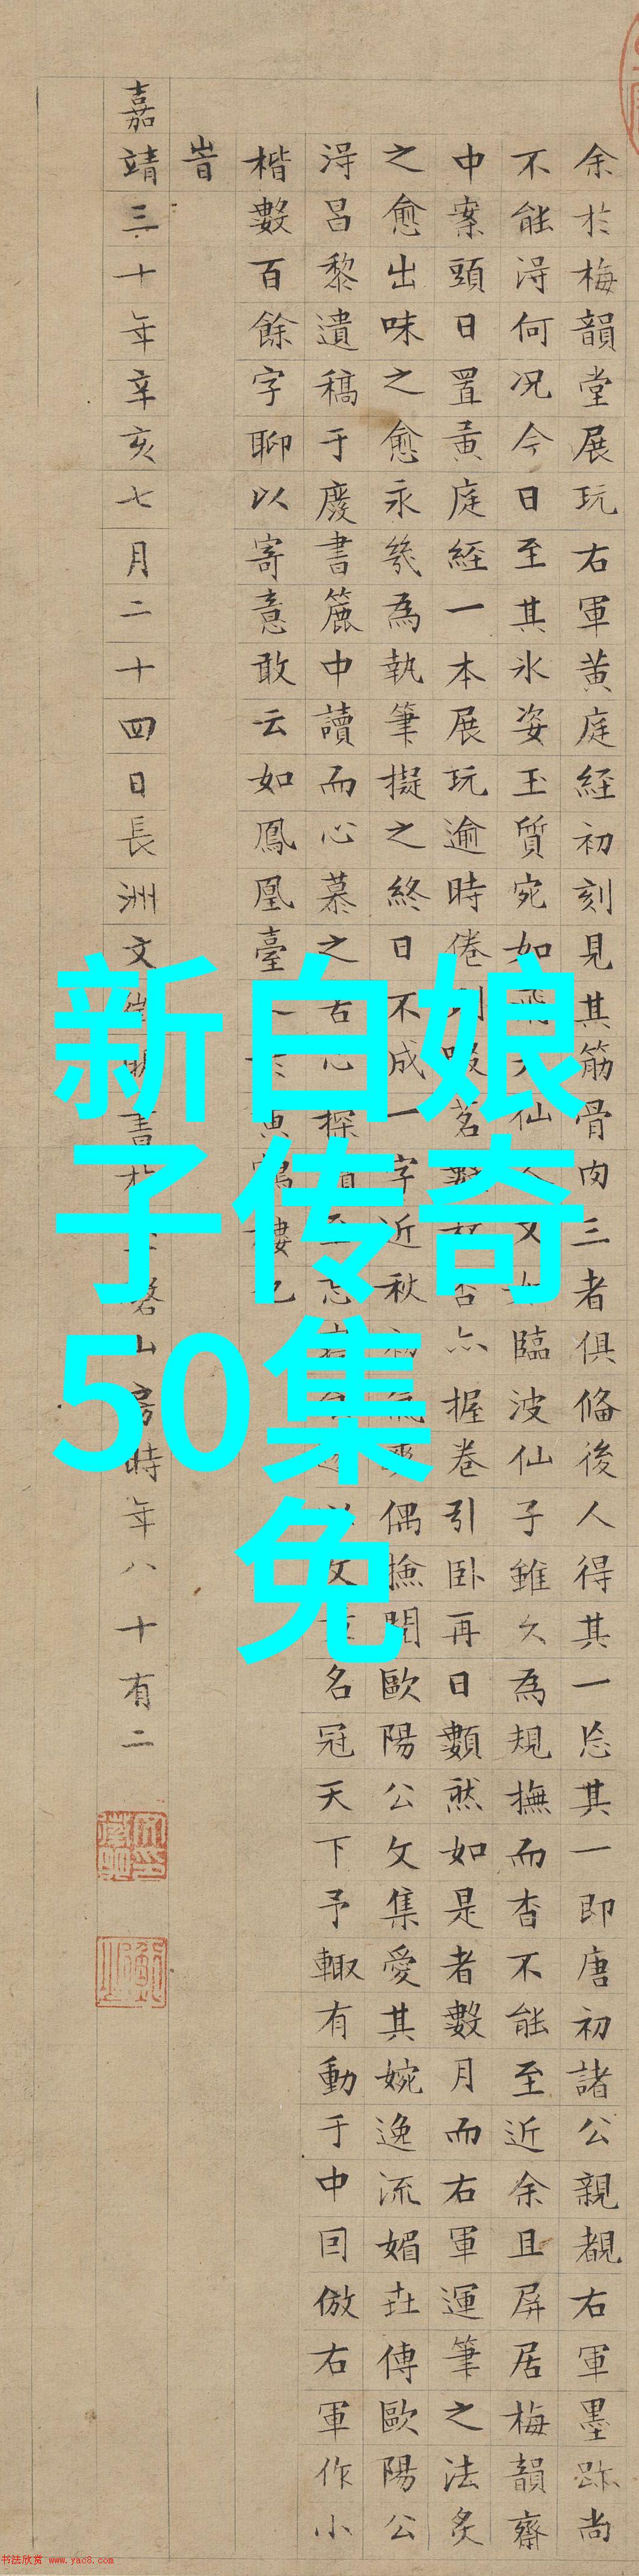 余於梅韻堂展玩右軍黄庭経初刻見其筋骨肉三者俱俻後人得其一忘其一即唐初諸公親覩右軍墨跡尚
不能淂何况今日至其氷姿玉質宛如仙又如臨波仙子雖久為規撫而杳不能至近余且屏居梅韻齋
中案頭日置黄庭經一本展玩逾時倦則啜茗否亦握卷引卧再日數然如是者數月而右軍運筆之法炙
之愈出味之愈永㡬為執筆擬之終日不成一字近秋初氣爽偶撿閱歐陽公文集愛其婉逸流媚世傳歐陽公
淂呂黎遺稿于廢書簏中讀而心慕之苦心探文章名冠天下予輙有動于中囙倣右軍作小
楷數百餘字聊以寄意敢云如鳳凰臺之於黄鶴樓也
旹
嘉靖三十年辛亥七月二十四日長洲文徵明書於玉磬山房時年八十有二
新白娘
子传奇
50集
免
书法欣赏 www.yac8.com